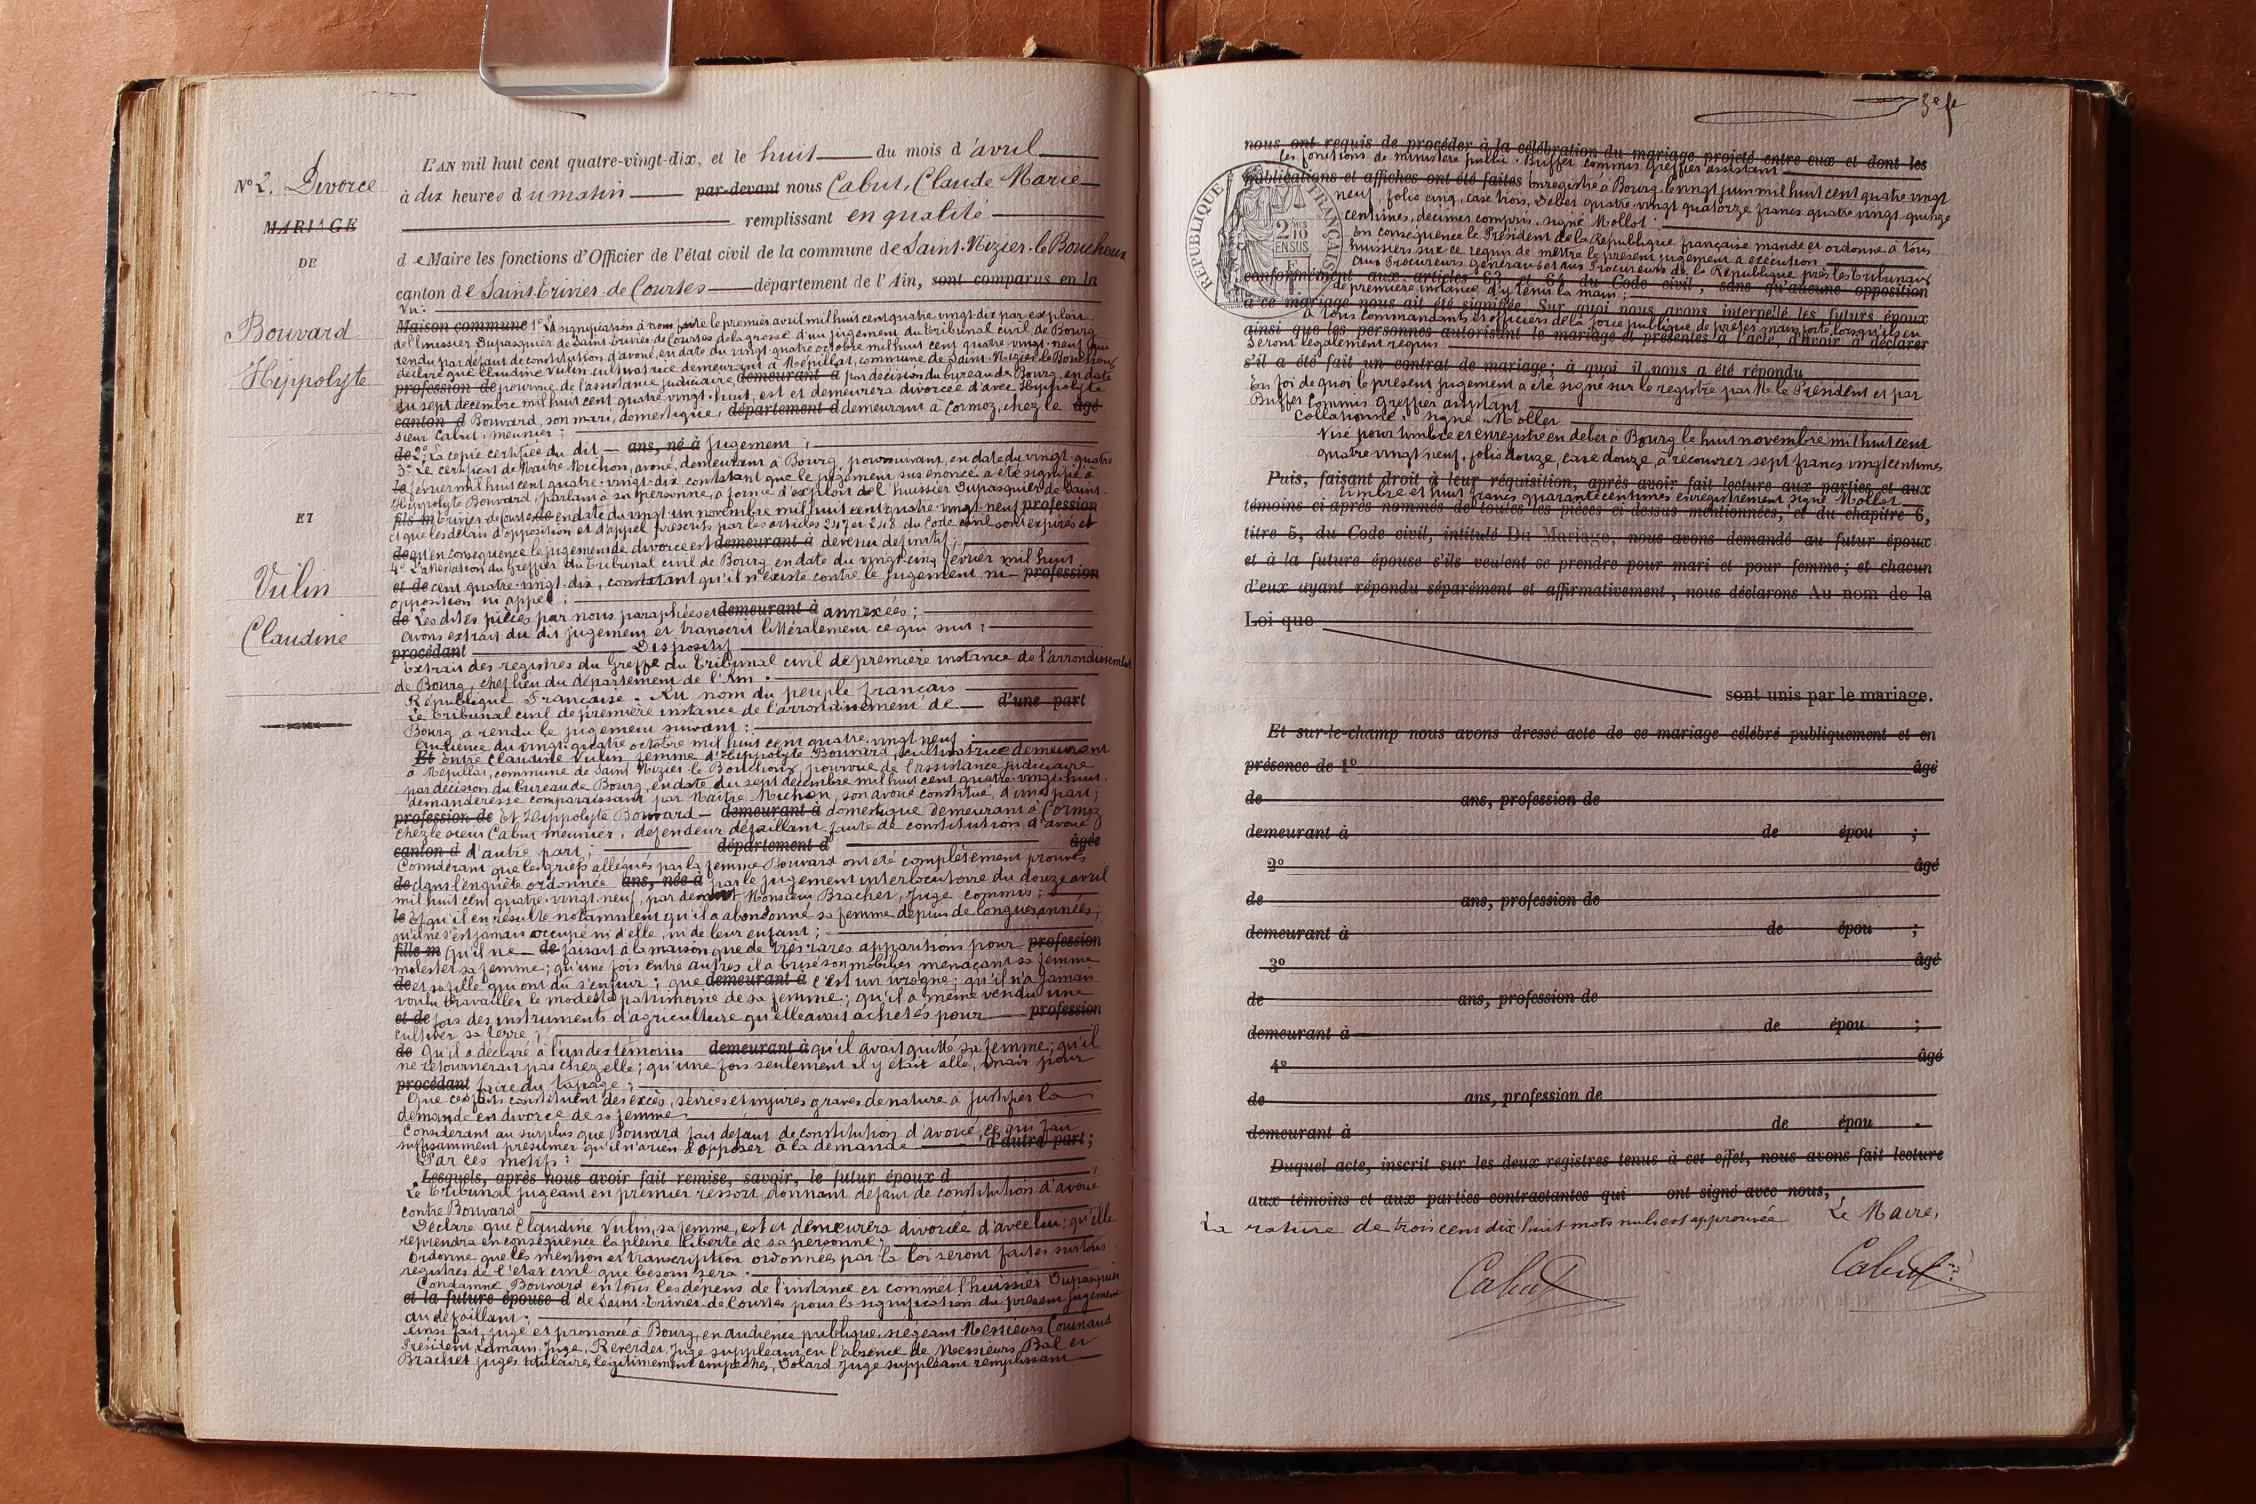 N° 2. Divorce
MARIAGE
DE
Bouvard
Hippolyte
ET
Vulin
Claudine
L'AN mil huit cent quatre-vingt-dix, et le huit du mois d'avril
à dix heures du matin par-devant nous Cabut, Claude Marie
remplissant en qualité
de Maire les fonctions d'Officier de l'état civil de la commune de Saint-Nizier-le-Bouchoux
canton de Saint-Trivier-de-Courtes département de l'Ain, sont comparus en la
Vu:
Maison commune 1° La signification à nous faite le premier avril mil huit cent quatre-vingt-dix par exploit
de l'huissier Dupasquier de Saint-Trivier-de-Courtes de la grosse d'un jugement du tribunal civil de Bourg
rendu par défaut de constitution d'avoué, en date du vingt-quatre octobre mil huit cent quatre-vingt-neuf qui
déclare que Claudine Vulin cultivatrice demeurant à Mépillat, commune de Saint-Nizier-le-Bouchoux
profession de pourvue de l'assistance judiciaire demeurant à par décision du bureau de Bourg, en date
du sept décembre mil huit cent quatre-vingt-huit, est et demeurera divorcée d'avec Hippolyte
canton d Bouvard, son mari, domestique, département d demeurant à Cormoz, chez le âgé
sieur Cabut, meunier;
de 2° La copie certifiée du dit ans, né à jugement;
3° Le certificat de Maître Michon, avoué, demeurant à Bourg, poursuivant, en date du vingt-quatre
le février mil huit cent quatre-vingt-dix constatant que le jugement sus énoncé a été signifié à
Hippolyte Bouvard, parlant à sa personne, à forme d'exploit de l'huissier Dupasquier de Saint-
fils m Trivier-de-Courtes de en date du vingt-un novembre mil huit cent quatre-vingt-neuf profession
et que les délais d'opposition et d'appel prescrits par les articles 247 et 248 du Code civil sont expirés et
de qu'en conséquence le jugement de divorce est demeurant à devenu définitif;
4° L'attestation du Greffier du tribunal civil de Bourg en date du vingt-cinq février mil huit
et de cent quatre-vingt-dix, constatant qu'il n'existe contre le jugement ni profession
opposition ni appel;
de Les dites pièces par nous paraphées et demeurant à annexées;
Avons extrait du dit jugement et transcrit littéralement ce qui suit:
procédant Dispositif
Extrait des registres du Greffe du tribunal civil de première instance de l'arrondissement
de Bourg, chef lieu du département de l'Ain.
République Française. Au nom du peuple français
Le tribunal civil de première instance de l'arrondissement de d'une part
Bourg a rendu le jugement suivant:
Audience du vingt-quatre octobre mil huit cent quatre-vingt neuf:
Et Entre Claudine Vulin femme d'Hippolyte Bouvard, cultivatrice demeurant
à Mépillat, commune de Saint Nizier-le-Bouchoux, pourvue de l'assistance judiciaire
par décision du bureau de Bourg, en date du sept décembre mil huit cent quatre-vingt-huit
demanderesse comparaissant par Maître Michon, son avoué constitué, d'une part;
profession de Et Hippolyte Bouvard demeurant à domestique demeurant à Cormoz
chez le sieur Cabut meunier, défendeur défaillant faute de constitution d'avoué
canton d d'autre part; département d âgée
Considérant que les griefs allégués par la femme Bouvard ont été complètement prouvés
de dans l'enquête ordonnée ans, née à par le jugement interlocutoire du douze avril
mil huit cent quatre-vingt-neuf, par devant Monsieur Brachet, Juge commis;
le Et qu'il en résulte notamment qu'il a abandonné sa femme depuis de longues années;
qu'il ne s'est jamais occupé ni d'elle, ni de leur enfant;
fille m qu'il ne de faisait à la maison que de très rares apparitions pour profession
molester sa femme; qu'une fois entre autres il a brisé son mobilier menaçant sa femme
de et sa fille qui ont dû s'enfuir; que demeurant à c'est un ivrogne; qu'il n'a jamais
voulu travailler le modeste patrimoine de sa femme; qu'il a même vendu une
et de fois des instruments d'agriculture qu'elle avait achetés pour profession
cultiver sa terre;
de Qu'il a déclaré à l'un des témoins demeurant à qu'il avait quitté sa femme; qu'il
ne retournerait pas chez elle; qu'une fois seulement il y était allé, mais pour
procédant faire du tapage;
Que ces faits constituent des excès, sévices et injures graves de nature à justifier la
demande en divorce de sa femme.
Considérant au surplus que Bouvard fait défaut de constitution d'avoué, ce qui fait
suffisamment présumer qu'il n'a rien à opposer à la demande d'autre part;
Par ces motifs:
Lesquels, après nous avoir fait remise, savoir, le futur époux d
Le tribunal jugeant en premier ressort, donnant défaut de constitution d'avoué
contre Bouvard
Déclare que Claudine Vulin, sa femme, est et demeurera divorcée d'avec lui; qu'elle
reprendra en conséquence la pleine liberté de sa personne;
Ordonne que les mention et transcription ordonnées par la loi seront faites sur tous
registres de l'état civil que besoin sera.
Condamne Bouvard en tous les dépens de l'instance et commet l'huissier Dupasquier
et la future épouse d de Saint-Trivier-de-Courtes pour la signification du présent jugement
au défaillant.
Ainsi fait, jugé et prononcé à Bourg, en audience publique, siégeant Messieurs
Président, Juge, Reverdet Juge suppléant en l'absence de Messieurs Bal et
Brachet juges titulaires légitimement empêchés, Dolard Juge suppléant remplissant
3e f
nous ont requis de procéder à la célébration du mariage projeté entre eux et dont les
les fonctions de ministère public. Buffet commis Greffier assistant
publications et affiches ont été faites Enregistré à Bourg le vingt juin mil huit cent quatre vingt
neuf, folio cinq, case trois, Debet quatre-vingt quatorze francs quatre vingt quinze
centimes, décimes compris. signé Mollot.
En conséquence le Président de la République française mande et ordonne à tous
huissiers sur ce requis de mettre le présent jugement à exécution
Aux Procureurs Généraux et aux Procureurs de la République près les tribunaux
conformément aux articles 63 et 64 du Code civil, sans qu'aucune opposition
de première instance d'y tenir la main;
à ce mariage nous ait été signifiée. Sur quoi nous avons interpellé les futurs époux
à tous commandants et officiers de la force publique de prêter main forte lorsqu'ils en
ainsi que les personnes autorisant le mariage et présentes à l'acte, d'avoir à déclarer
seront légalement requis
s'il a été fait un contrat de mariage; à quoi il nous a été répondu
En foi de quoi le présent jugement a été signé sur le registre par M. le Président et par
Buffet Commis Greffier assistant
Collationné. signé Mollet
Visé pour timbre et enregistré en debet à Bourg le huit novembre mil huit cent
quatre vingt neuf, folio douze, case douze, à recouvrer sept francs vingt centimes
Puis, faisant droit à leur réquisition, après avoir fait lecture aux parties et aux
timbre et huit francs quarante centimes enregistrement signé Mollot
témoins ci-après nommés de toutes les pièces ci-dessus mentionnées, et du chapitre 6,
titre 5, du Code civil, intitulé Du Mariage, nous avons demandé au futur époux
et à la future épouse s'ils veulent se prendre pour mari et pour femme; et chacun
d'eux ayant répondu séparément et affirmativement, nous déclarons Au nom de la
Loi que
sont unis par le mariage.
Et sur-le-champ nous avons dressé acte de ce mariage célébré publiquement et en
présence de 1° âgé
de ans, profession de
demeurant à de épou ;
2° âgé
de ans, profession de
demeurant à de épou ;
3° âgé
de ans, profession de
demeurant à de épou ;
4° âgé
de ans, profession de
demeurant à de épou .
Duquel acte, inscrit sur les deux registres tenus à cet effet, nous avons fait lecture
aux témoins et aux parties contractantes qui ont signé avec nous,
La rature de trois cent dix huit mots nuls est approuvée Le Maire,
Cabut Cabut
RÉPUBLIQUE FRANÇAISE